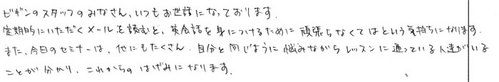 ビギンのスタッフのみなさん、いつもお世話になっております。
定期的にいただくメールを読むと、英会話を身につけるために頑張らなくてはという気持ちになります。
また、今日のセミナーは、他にもたくさん、自分と同じように悩みながらレッスンに通っている人達がいる
ことが分かり、これからのはげみになります。